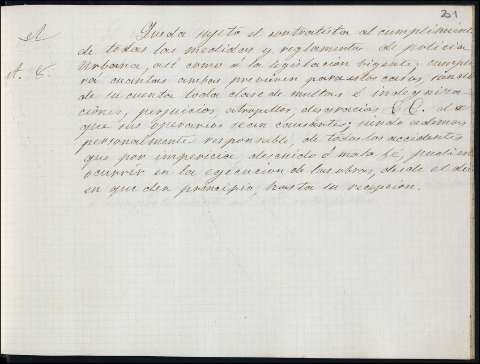 201
el Queda sujeto el contratista al cumplimiento
de todas las medidas y reglamentos de policia
Urbana, así como á la legislación bigente; cumpli
A. C. rá cuantas ambas previenen para estos casos, siendo
de su cuenta toda clase de multas é indemniza-
ciones, perjuicios, atropellos, desgracias &. C. de
que sus operarios sean causantes; siendo ademas
personalmente responsable, de todos los accidentes
que por impericia, descuido ó mala fé, pudieran
ocurrir en la ejecución de las obras, desde el dia
en que den principio, hasta su recepción.